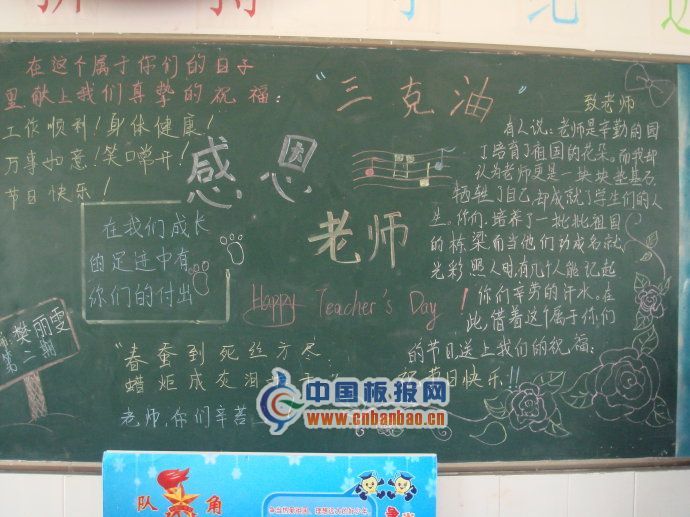 在这个属于你们的日子
里献上我们真挚的祝福：
工作顺利！身体健康！
万事如意！笑口常开！
节日快乐！
"三克油"
感恩
老师
Happy Teacher's Day！
在我们成长
的足迹中有
你们的付出
樊丽雯
第二期
"春蚕到死丝方尽
蜡炬成灰泪
老师，你们辛苦
致老师
有人说：老师是辛勤的园
丁培育了祖国的花朵。而我却
认为老师更是一块块垫基石。
牺牲了自己，却成就了学生们的人
生。你们，培养了一批批祖国
的栋梁而当他们功成名就，
光彩照人时，有几个人能记起
你们辛劳的汗水。在
此，借着这个属于你们
的节日送上我们的祝福：
节日快乐！！
中国板报网
www.cnbanbao.cn
队
角